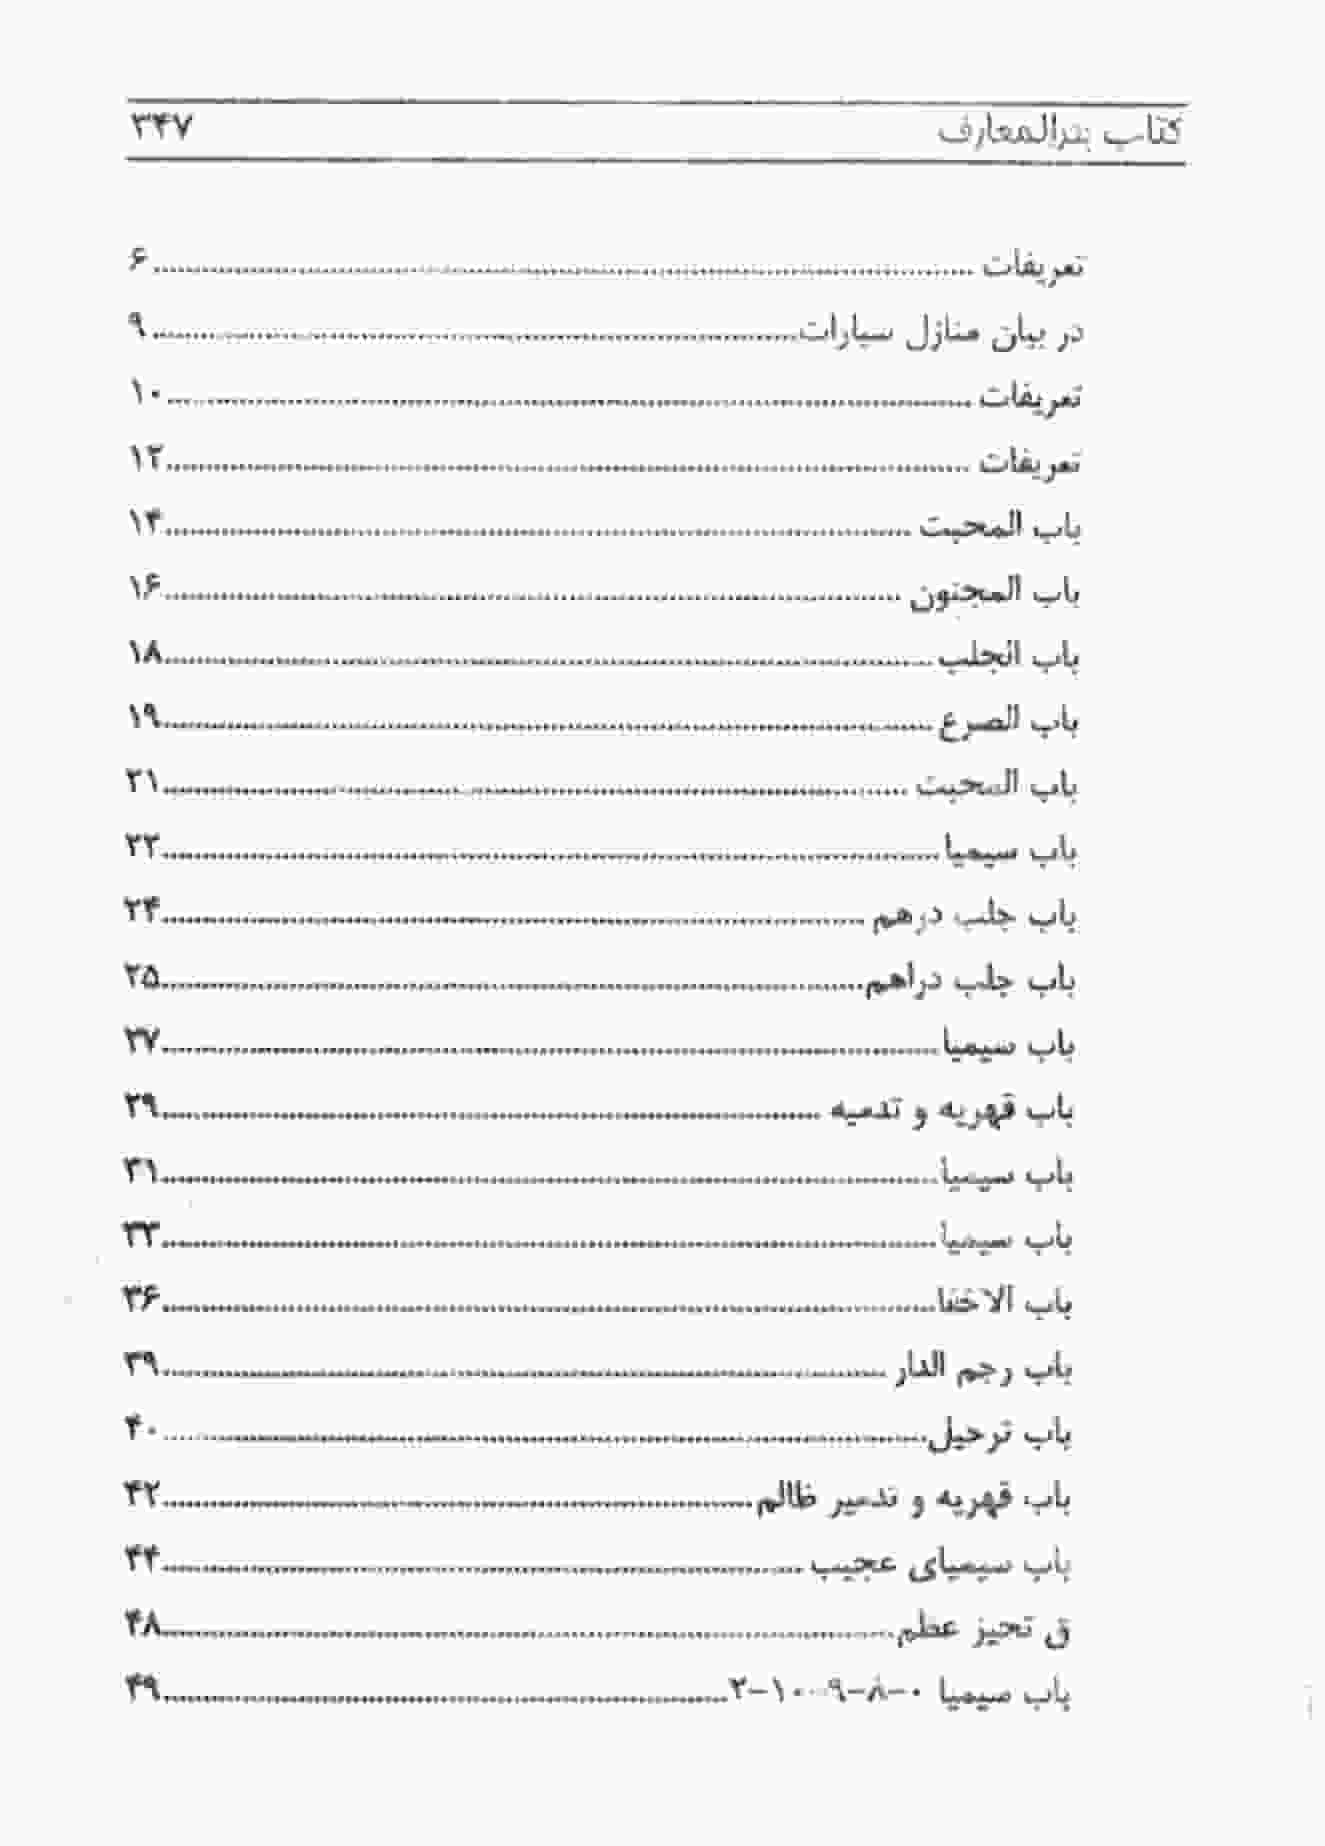 کتاب بئرالمعارف ۳۴۷
تعریفات ۶
در بیان منازل سیارات ۹
تعریفات ۱۰
تعریفات ۱۲
باب المحبت ۱۴
باب المجنون ۱۶
باب الجلب ۱۸
باب الصرع ۱۹
باب المحبت ۲۱
باب سیمیا ۲۲
باب جلب درهم ۲۴
باب جلب دراهم ۲۵
باب سیمیا ۲۷
باب قهریه و تدمیه ۲۹
باب سیمیا ۳۱
باب سیمیا ۳۳
باب الاخفا ۳۶
باب رجم الدار ۳۹
باب ترحیل ۴۰
باب قهریه و تدمیر ظالم ۴۲
باب سیمیای عجیب ۴۴
ق تحیز عظم ۴۸
باب سیمیا ۰-۸-۹-۱۰-۲ ۴۹